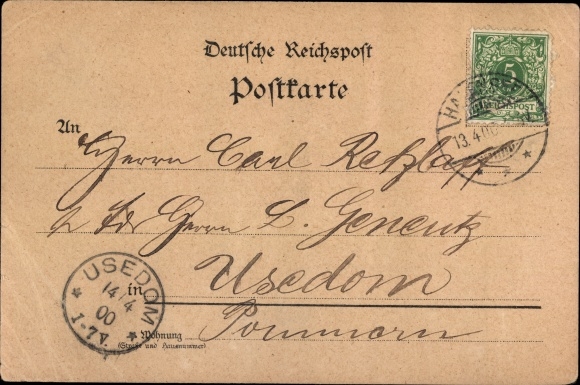 Deutsche Reichspost
Postkarte
5
REICHSPOST
13.4.00
An
Herrn Carl Retzlaff
Herrn L. Genentz
in Usedom
Wohnung Pommern
(Straße und Hausnummer)
USEDOM
14/4
00
1-7V.